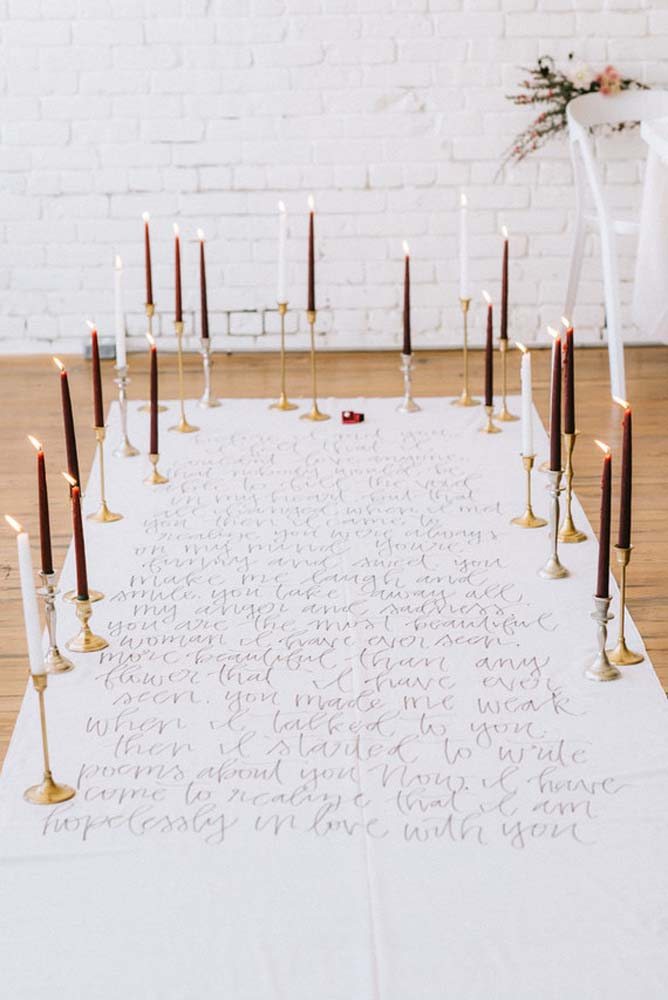 before i met you
i felt that i
couldn't love anyone
that nobody would be
able to fill the void
in my heart but that
all changed when i met
you then i came to
realize you were always
on my mind you're
funny and sweet you
make me laugh and
smile. you take away all
my anger and sadness.
you are the most beautiful
woman i have ever seen.
more beautiful than any
flower that i have ever
seen. you made me weak
when i talked to you.
then i started to write
poems about you now, i have
come to realize that i am
hopelessly in love with you